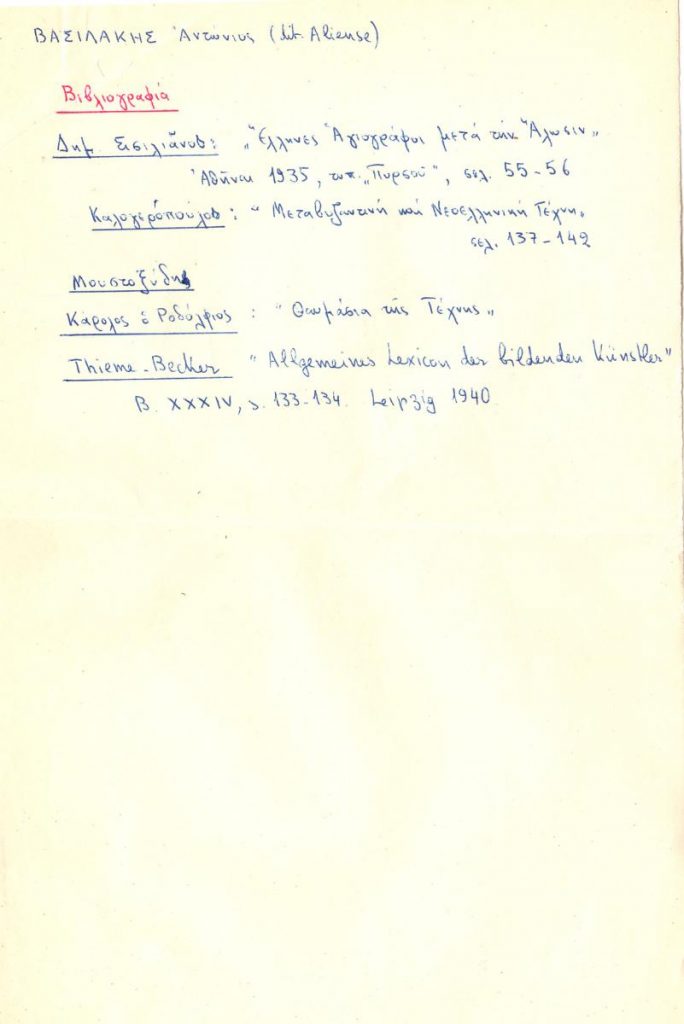 ΒΑΣΙΛΑΚΗΣ Ἀντώνιος (dit. Aliense)
Βιβλιογραφία
Δημ. Σισιλιᾶνου: „Ἕλληνες Ἁγιογράφοι μετά τήν Ἅλωσιν„
Ἀθῆναι 1935, τυπ. „Πυρσοῦ", σελ. 55-56
Καλογερόπουλου: “Μεταβυζαντινή καί Νεοελληνική Τέχνη„
σελ. 137-142
Μουστοξύδης
Κάρολος ὁ Ροδόλφιος : “Θαυμάσια τῆς Τέχνης„
Thieme-Becker “Allgemeines Lexicon der bildenden Künstler"
B. XXXIV, s. 133-134. Leipzig 1940